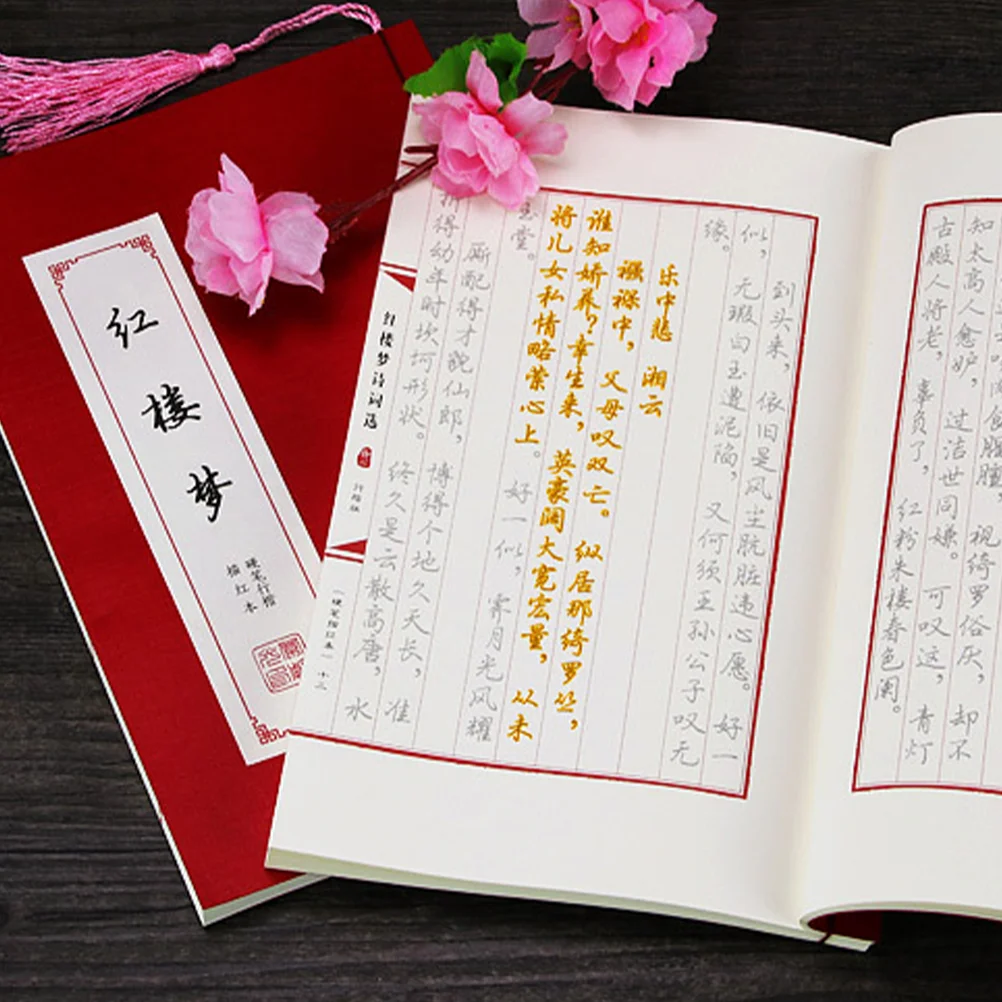 红楼梦
硬笔行楷
描红本
食腥膻，视绮罗俗厌，却不
知太高人愈妒，过洁世同嫌。可叹这，青灯
古殿人将老，辜负了，红粉朱楼春色阑。
到头来，依旧是风尘肮脏违心愿。好一
似，无瑕白玉遭泥陷，又何须王孙公子叹无
缘。
乐中悲 湘云
襁褓中，父母叹双亡。纵居那绮罗丛，
谁知娇养？幸生来，英豪阔大宽宏量，从未
将儿女私情略萦心上。好一似，霁月光风耀
玉堂。
厮配得才貌仙郎，博得个地久天长，准
折得幼年时坎坷形状。终久是云散高唐，水
红楼梦诗词选
行楷版
（硬笔描红本）十三